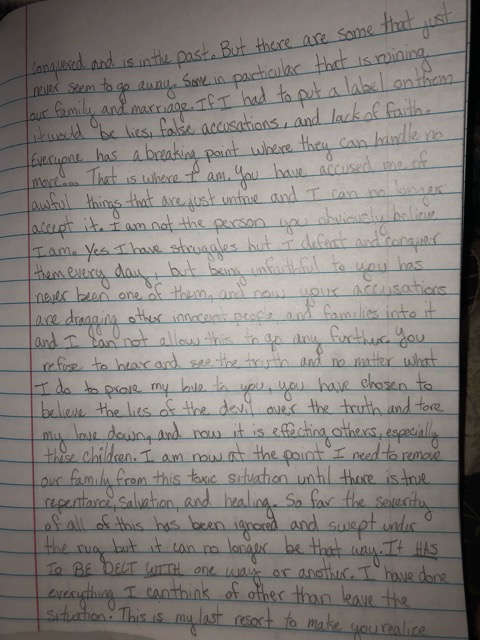 conquered and is in the past. But there are some that just
never seem to go away. Some in particular that is ruining
our family and marriage. If I had to put a label on them
it would be lies, false accusations, and lack of faith.
Everyone has a breaking point where they can handle no
more... That is where I am. You have accused me of
awful things that are just untrue and I can no longer
accept it. I am not the person you obviously believe
I am. Yes I have struggles but I defeat and conquer
them every day, but being unfaithful to you has
never been one of them, and now your accusations
are dragging other innocent people and families into it
and I can not allow this to go any further. You
refuse to hear and see the truth and no matter what
I do to prove my love to you, you have chosen to
believe the lies of the devil over the truth and tore
my love down, and now it is effecting others, especially
these children. I am now at the point I need to remove
our family from this toxic situation until there is true
repentance, salvation, and healing. So far the severity
of all of this has been ignored and swept under
the rug but it can no longer be that way. It HAS
TO BE DELT WITH one way or another. I have done
everything I can think of other than leave the
situation. This is my last resort to make you realize